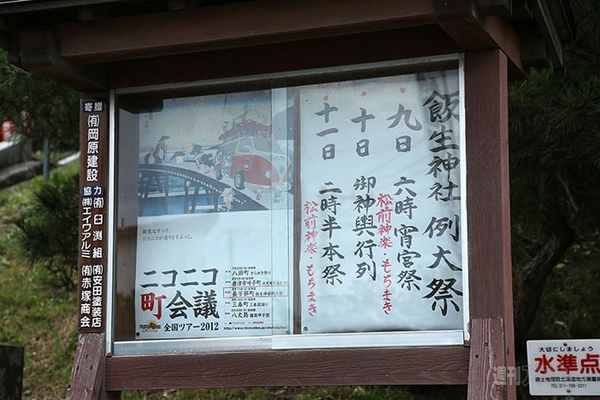 飯生神社 例大祭
九日 六時宵宮祭
松前神楽・もちまき
十日 御神輿行列
十一日 二時半本祭
松前神楽・もちまき
ニコニコ
町会議
全国ツアー2012
八頭町
長万部町
三春町
八丈島
寄贈
(有)岡原建設
協力
(有)臼渕組
(有)安田塗装店
(株)エイワアルミ
(有)赤塚商会
大切にしましょう
水準点
国土地理院北海道地方測量部
週刊